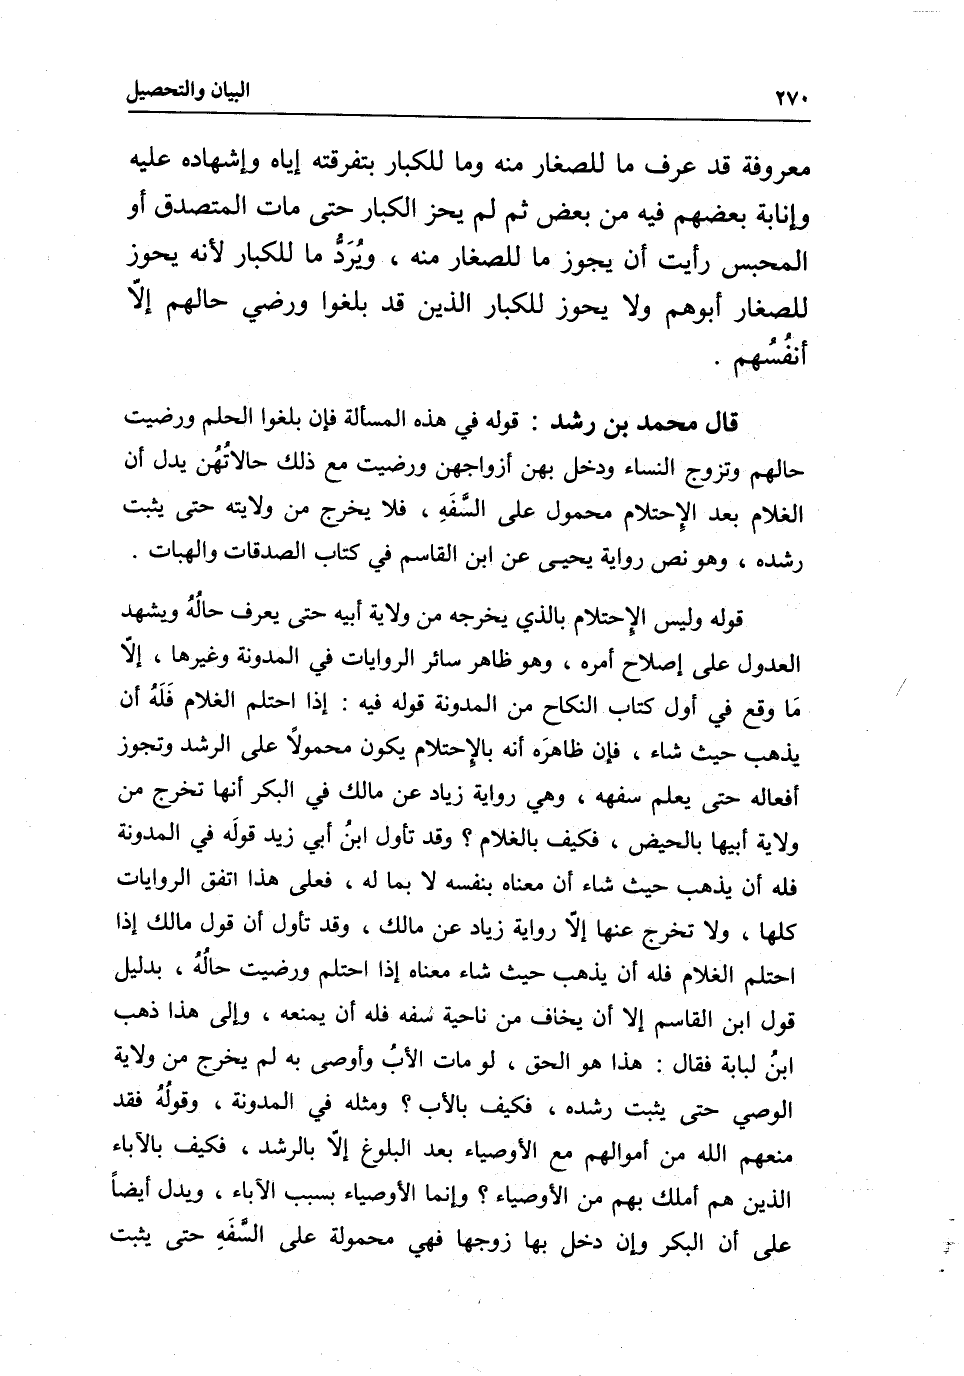 ٢٧٠ البيان والتحصيل
معروفة قد عرف ما للصغار منه وما للكبار بتفرقته إياه وإشهاده عليه
وإنابة بعضهم فيه من بعض ثم لم يحز الكبار حتى مات المتصدق أو
المحبس رأيت أن يجوز ما للصغار منه ، ويُرَدُّ ما للكبار لأنه يحوز
للصغار أبوهم ولا يحوز للكبار الذين قد بلغوا ورضي حالهم إلّا
أنفُسُهم .
قال محمد بن رشد : قوله في هذه المسألة فإن بلغوا الحلم ورضيت
حالهم وتزوج النساء ودخل بهن أزواجهن ورضيت مع ذلك حالاتُهُن يدل أن
الغلام بعد الإِحتلام محمول على السَّفَهِ ، فلا يخرج من ولايته حتى يثبت
رشده ، وهو نص رواية يحيـى عن ابن القاسم في كتاب الصدقات والهبات .
قوله وليس الإِحتلام بالذي يخرجه من ولاية أبيه حتى يعرف حالُهُ ويشهد
العدول على إصلاح أمره ، وهو ظاهر سائر الروايات في المدونة وغيرها ، إلّا
مَا وقع في أول كتاب النكاح من المدونة قوله فيه : إذا احتلم الغلام فَلَهُ أن
يذهب حيث شاء ، فإن ظاهرَه أنه بالإِحتلام يكون محمولاً على الرشد وتجوز
أفعاله حتى يعلم سفهه ، وهي رواية زياد عن مالك في البكر أنها تخرج من
ولاية أبيها بالحيض ، فكيف بالغلام ؟ وقد تأول ابنُ أبي زيد قولَه في المدونة
فله أن يذهب حيث شاء أن معناه بنفسه لا بما له ، فعلى هذا اتفق الروايات
كلها ، ولا تخرج عنها إلّا رواية زياد عن مالك ، وقد تأول أن قول مالك إذا
احتلم الغلام فله أن يذهب حيث شاء معناه إذا احتلم ورضيت حالُهُ ، بدليل
قول ابن القاسم إلا أن يخاف من ناحية سفه فله أن يمنعه ، وإلى هذا ذهب
ابنُ لبابة فقال : هذا هو الحق ، لو مات الأبُ وأوصى به لم يخرج من ولاية
الوصي حتى يثبت رشده ، فكيف بالأب ؟ ومثله في المدونة ، وقولُهُ فقد
منعهم الله من أموالهم مع الأوصياء بعد البلوغ إلّا بالرشد ، فكيف بالآباء
الذين هم أملك بهم من الأوصياء ؟ وإنما الأوصياء بسبب الآباء ، ويدل أيضاً
على أن البكر وإن دخل بها زوجها فهي محمولة على السَّفَهِ حتى يثبت